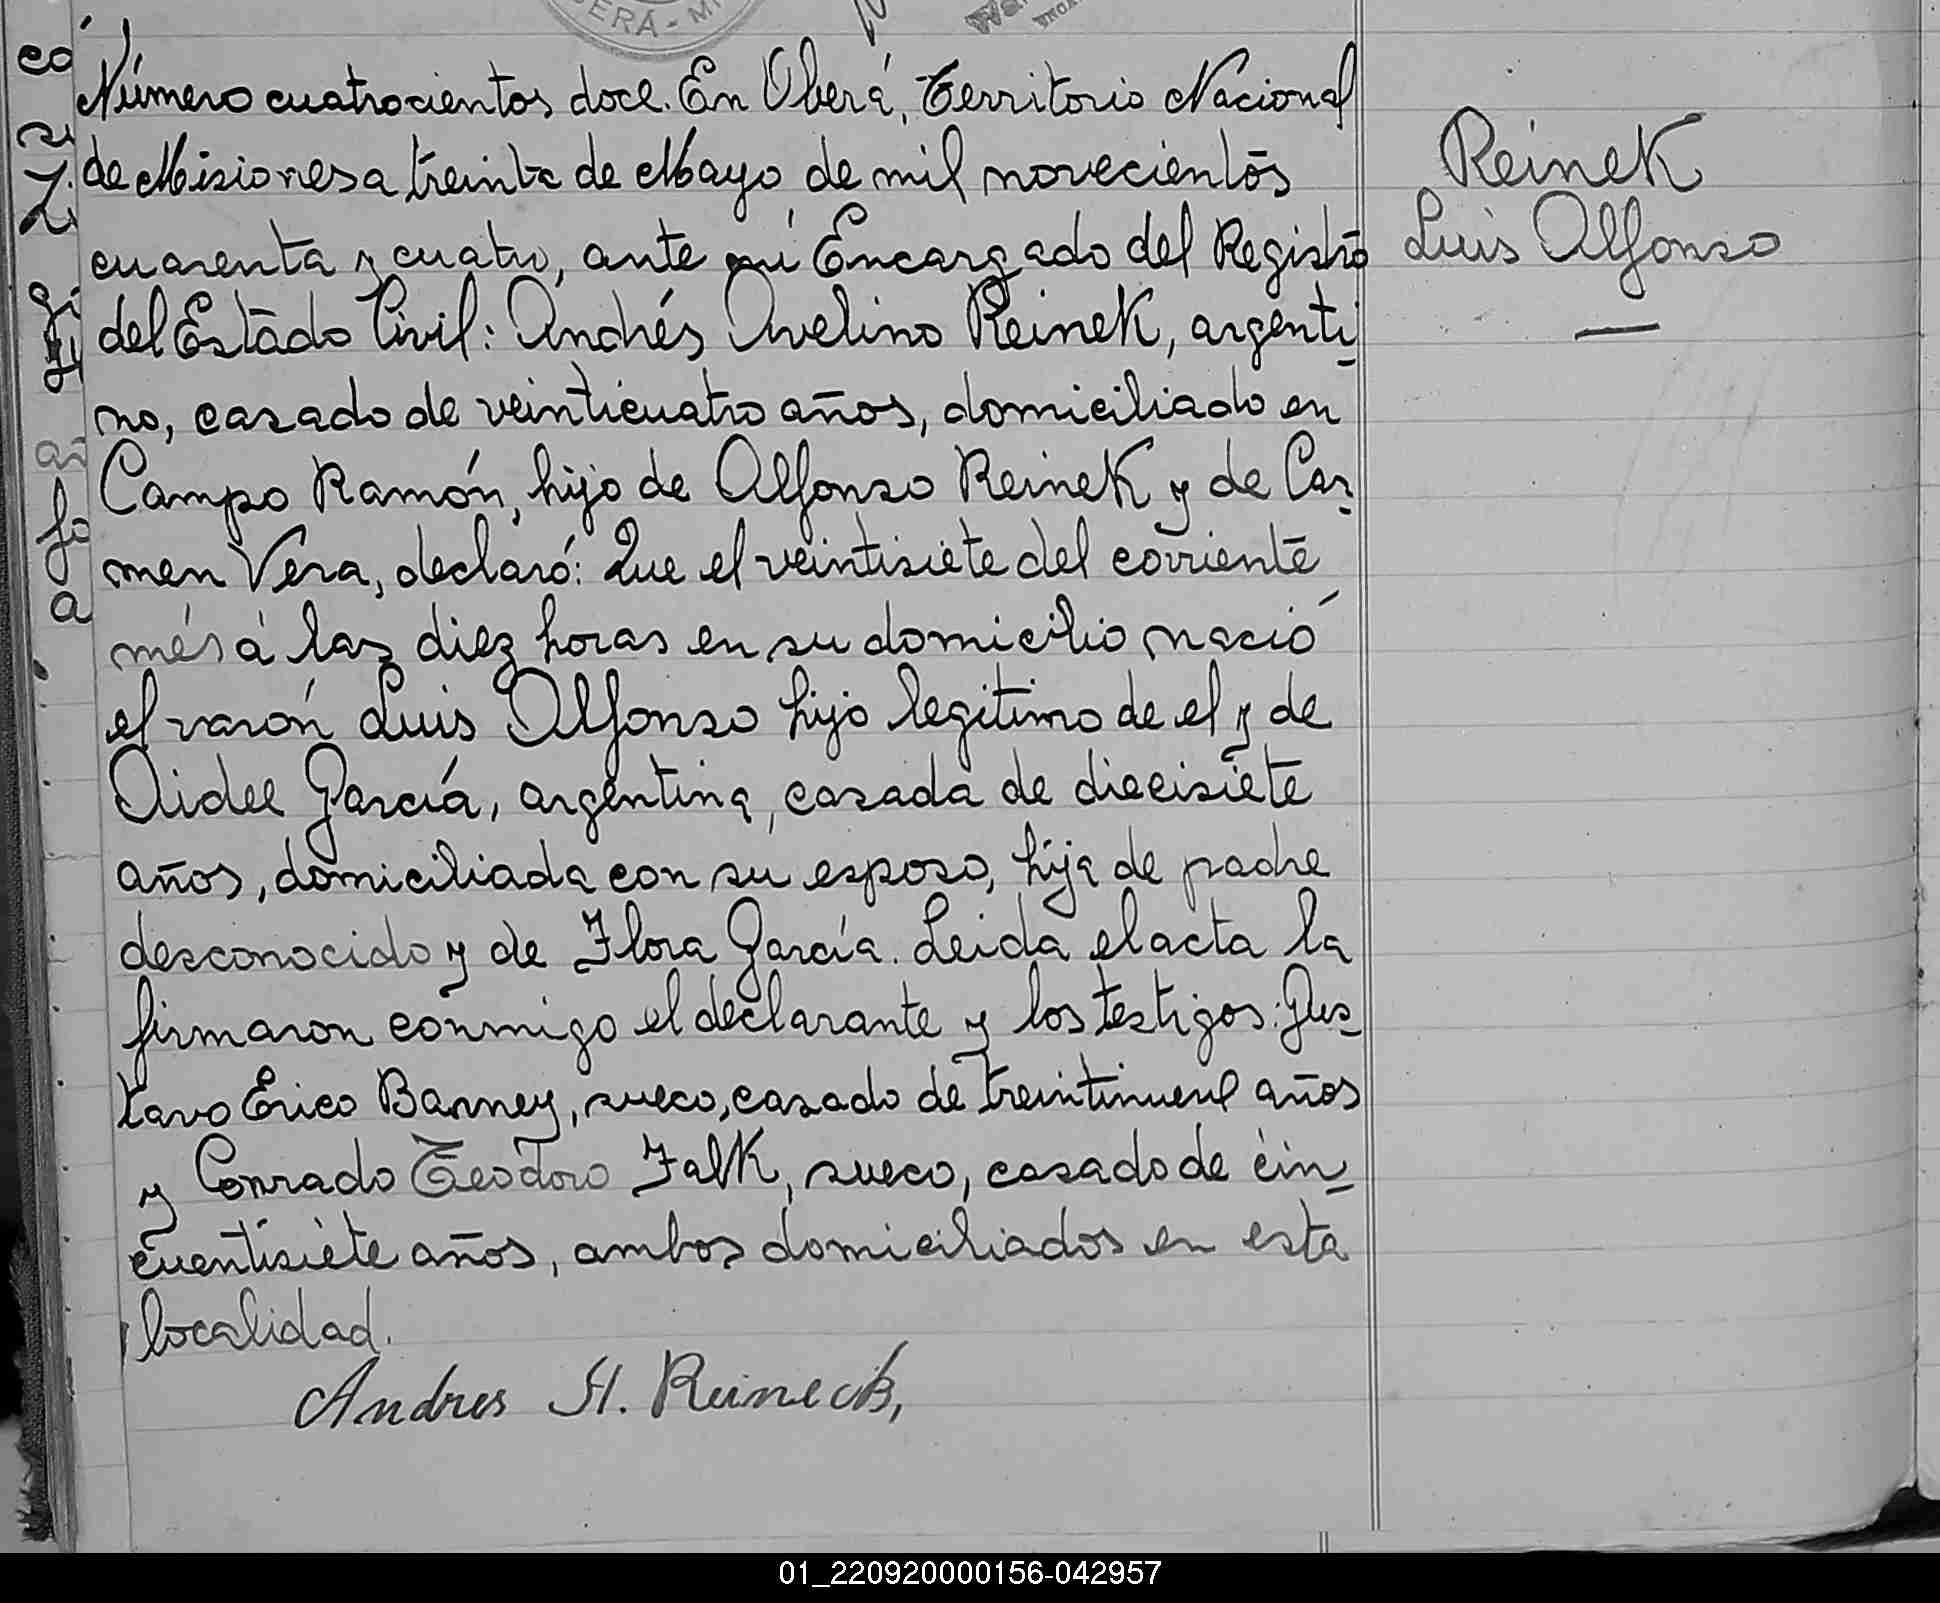 BERÁ - MI
Número cuatrocientos doce. En Oberá, Territorio Nacional
de Misiones a treinta de Mayo de mil novecientos
cuarenta y cuatro, ante mí Encargado del Registro
del Estado Civil: Andrés Avelino Reinek, argenti_
no, casado de veinticuatro años, domiciliado en
Campo Ramón, hijo de Alfonso Reinek y de Car_
men Vera, declaró: Que el veintisiete del corriente
més á las diez horas en su domicilio nació
el varón Luis Alfonso hijo legitimo de el y de
Aidee García, argentina, casada de diecisiete
años, domiciliada con su esposo, hija de padre
desconocido y de Flora García. Leida el acta la
firmaron conmigo el declarante y los testigos: Gus_
tavo Erico Banney, sueco, casado de treintinueve años
y Conrado Teodoro Falk, sueco, casado de cin_
cuentisiete años, ambos domiciliados en esta
localidad.
Andres A. Reineck,
Reinek
Luis Alfonso
01_220920000156-042957